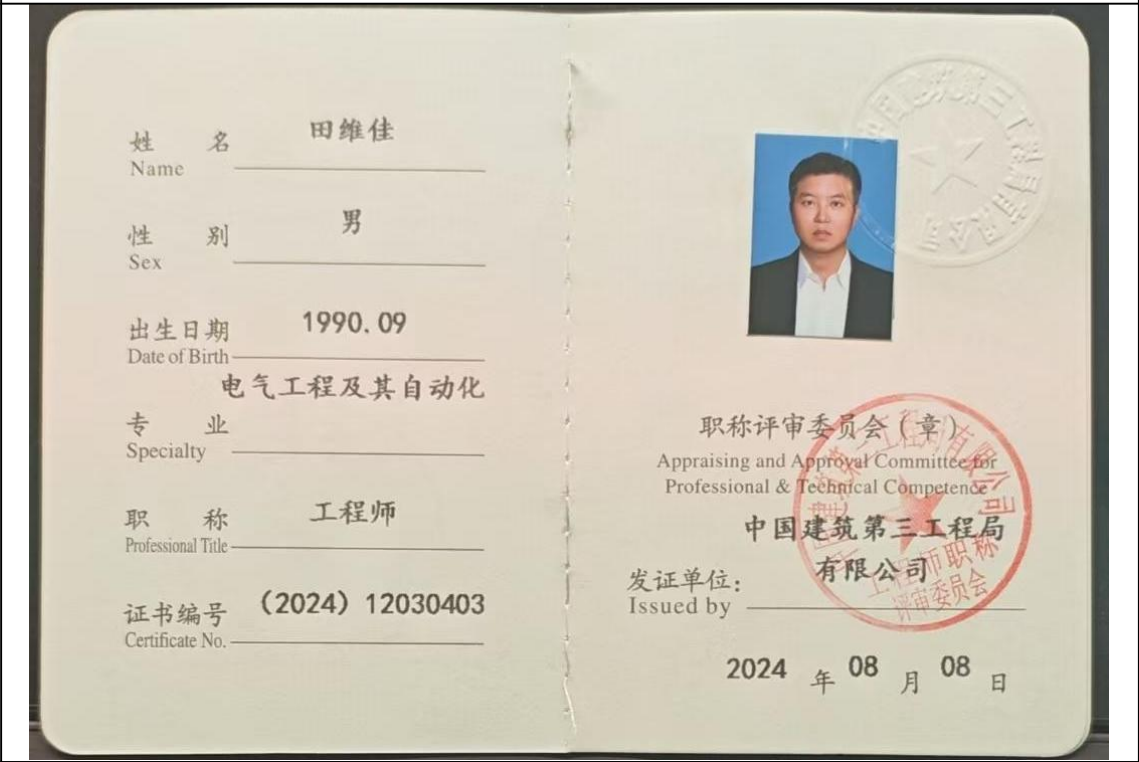 姓 名 田维佳
Name
性 别 男
Sex
出生日期 1990.09
Date of Birth
电气工程及其自动化
专 业
Specialty
职 称 工程师
Professional Title
证书编号 (2024) 12030403
Certificate No.
职称评审委员会(章)
Appraising and Approval Committee for
Professional & Technical Competence
中国建筑第三工程局
有限公司
发证单位:
Issued by
2024 年 08 月 08 日
中国建筑第三工程局有限公司
工程师职称
评审委员会